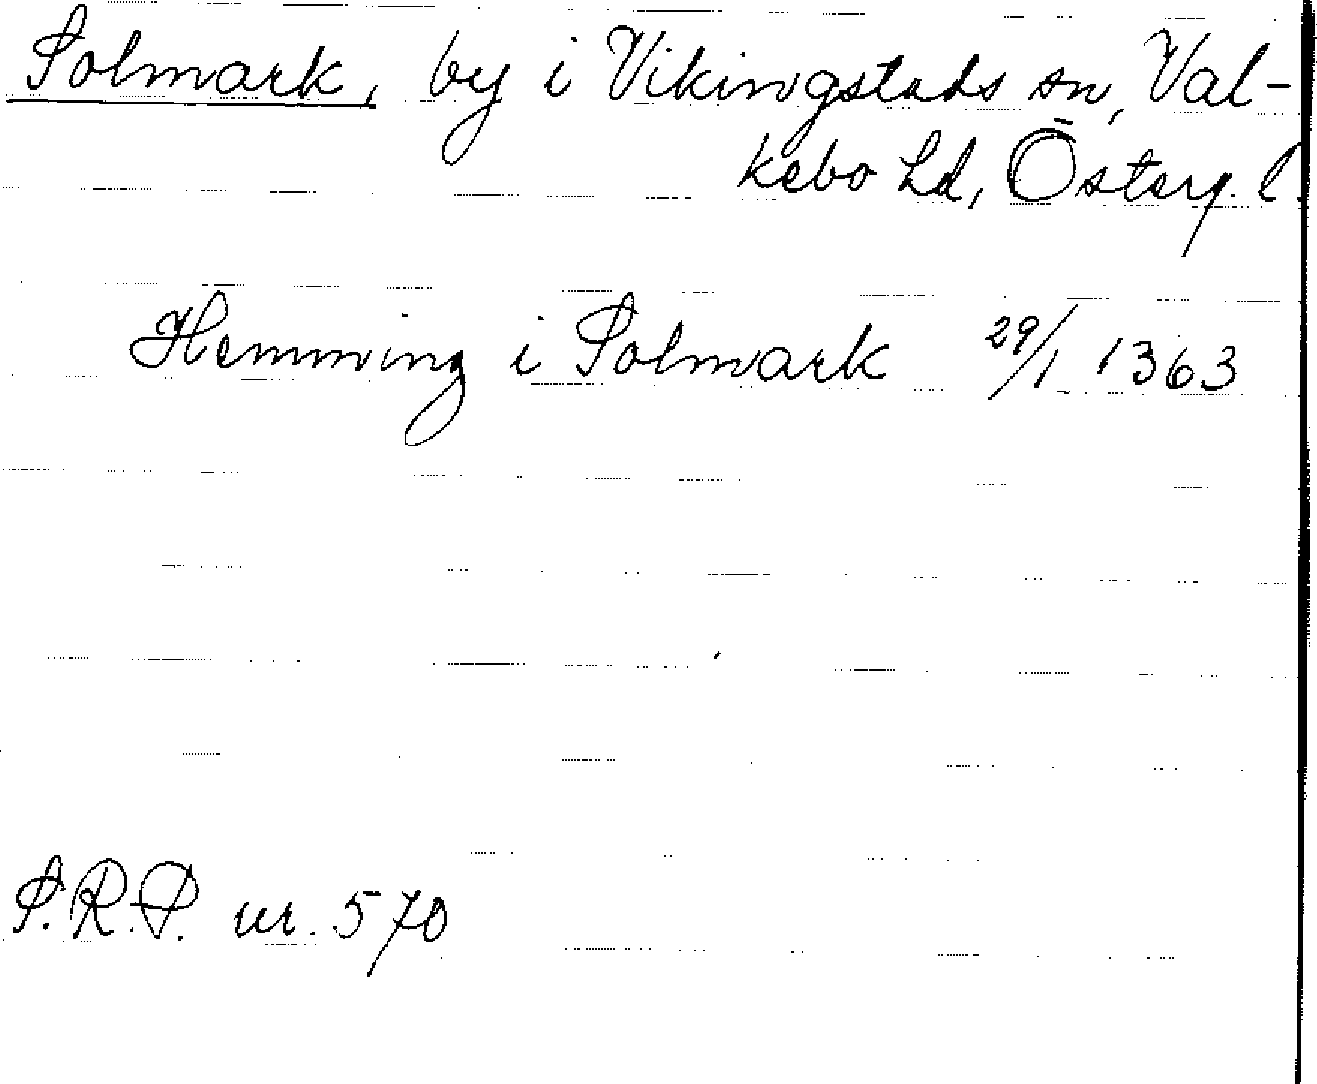 Solmark, by i Vikingstads sn, Val-
kebo hd, Österg. l.
Hemming i Solmark 29/1 1363
S.R.P. nr. 570